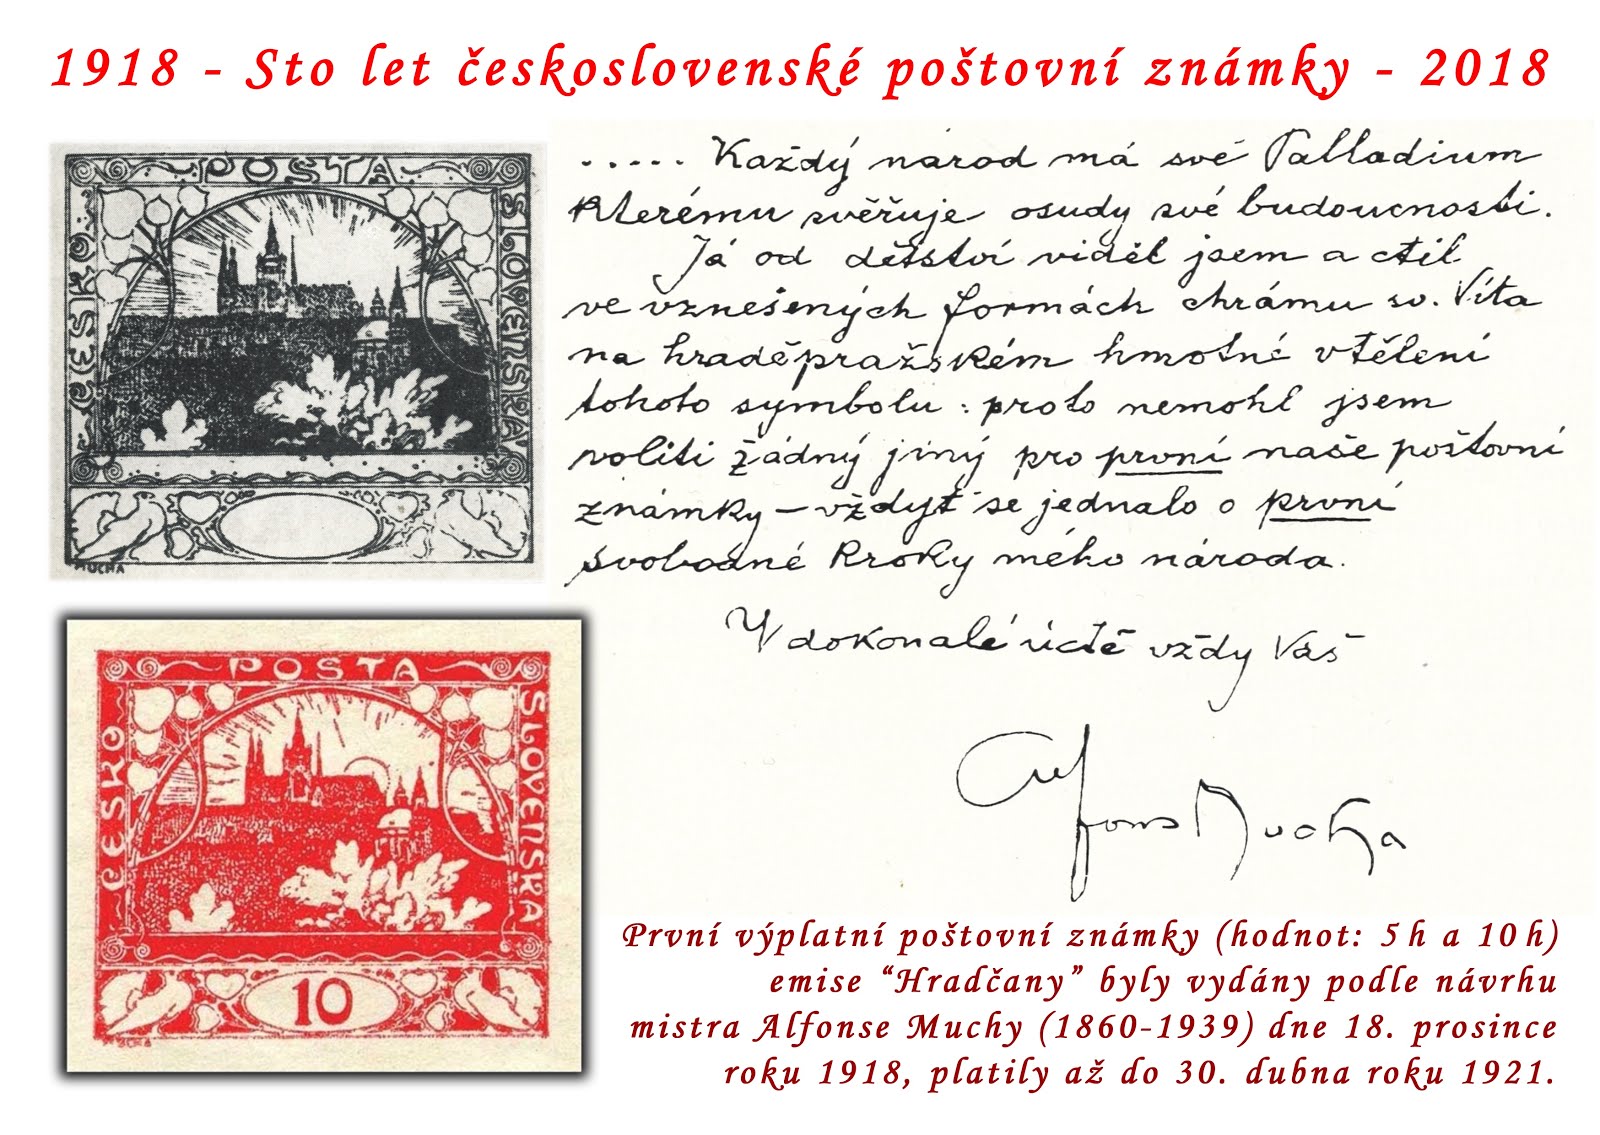 1918 - Sto let československé poštovní známky - 2018
POSTA
ČESKO
SLOVENSKA
MUCHA
..... Každý národ má své Palladium
kterému svěřuje osudy své budoucnosti.
Já od dětství viděl jsem a ctil
ve vznešených formách chrámu sv. Víta
na hradě pražském hmotné vtělení
tohoto symbolu: proto nemohl jsem
voliti žádný jiný pro první naše poštovní
známky – vždyť se jednalo o první
svobodné kroky mého národa.
V dokonalé úctě vždy Váš
Alfons Mucha
POSTA
ČESKO
SLOVENSKA
10
MUCHA
První výplatní poštovní známky (hodnot: 5 h a 10 h)
emise “Hradčany” byly vydány podle návrhu
mistra Alfonse Muchy (1860-1939) dne 18. prosince
roku 1918, platily až do 30. dubna roku 1921.